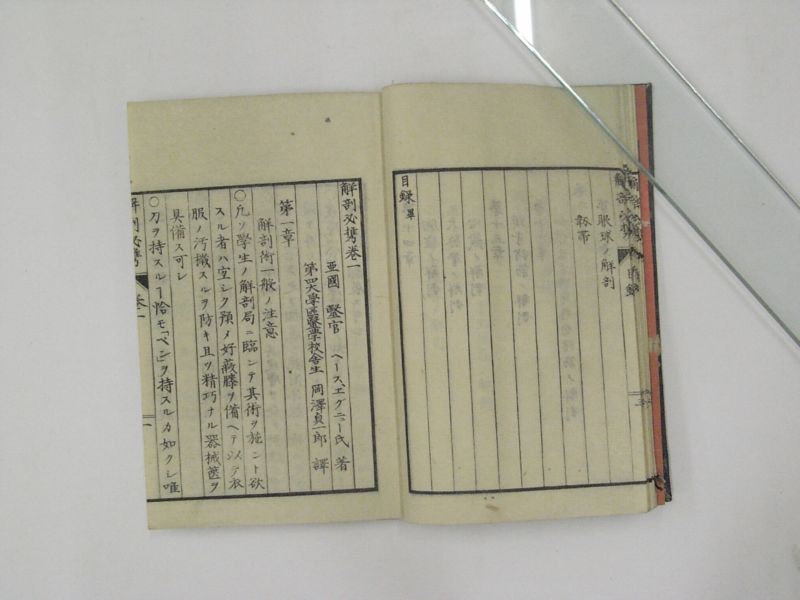 眼球ノ解剖
靱帯
目録 畢
解剖必携巻一
亜國 醫官 ヘースエグニー氏 著
第四大学區醫学校舎生 岡澤貞一郎 譯
第一章
解剖術一般ノ注意
○凢ソ學生ノ解剖局ニ臨ンテ其術ヲ施ント欲
スル者ハ宜シク預メ好蔽膝ヲ備ヘテ以テ衣
服ノ汚穢スルヲ防キ且ツ精巧ナル器械篋ヲ
具備ス可シ
○刀ヲ持スルヿ恰モ「ペン」ヲ持スルカ如クシ唯
解剖必携 巻一 一